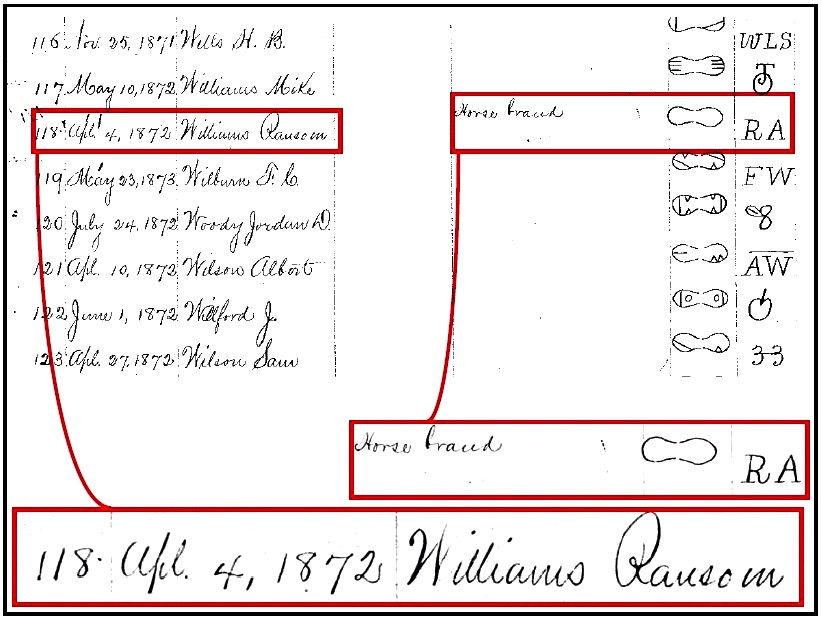 116. Nov. 25, 1871 Wells H. B. WLS
117 May 10, 1872 Williams Mike
118. Apl. 4, 1872 Williams Ransom Horse brand RA
119 May 23, 1873 Wilburn F. C. FW
120 July 24, 1872 Woody Jordan D. 8
121 Apl. 10, 1872 Wilson Albert AW
122 June 1, 1872 Wilford J.
123 Apl. 27, 1872 Wilson Sam 33
Horse brand RA
118. Apl. 4, 1872 Williams Ransom